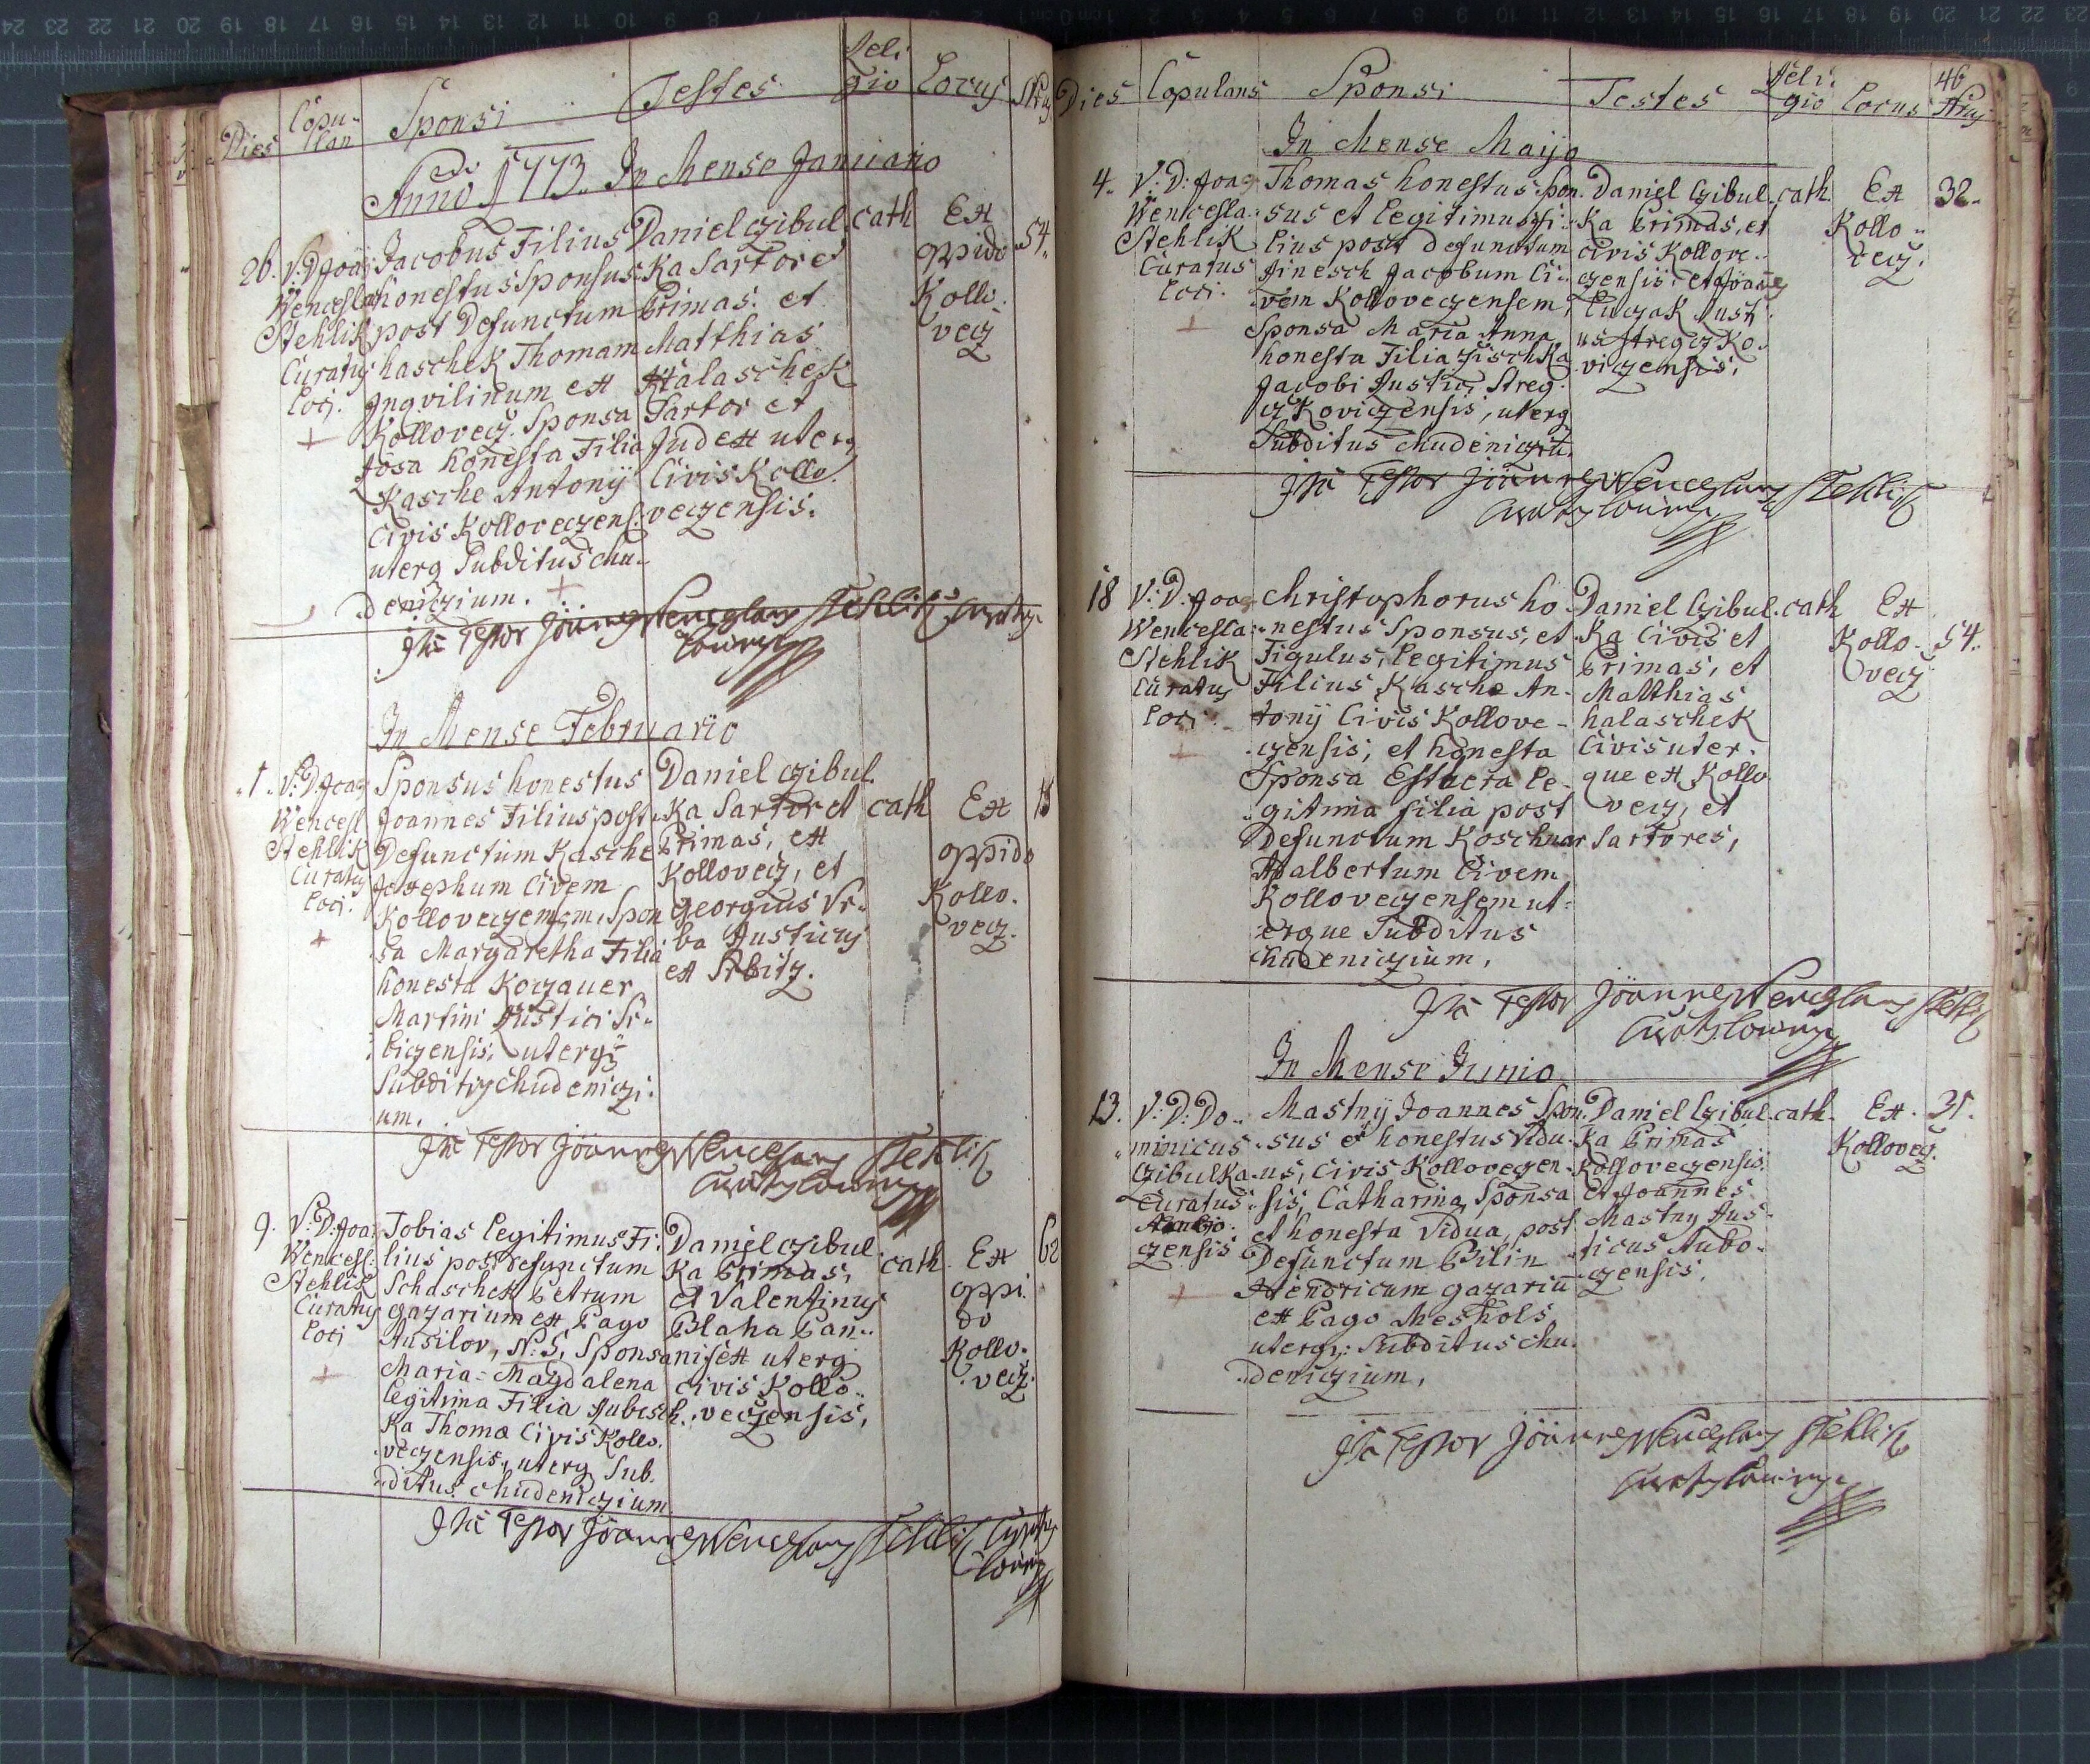 Dies
Copu-
lan
Sponsi
Testes
Reli
gio
Locus
Anno 1773. In Mense Januario
26.
V: D: Joa:
Wencesla
Stehlik
Curatus
Loci.
Jacobus Filius
honestus Sponsus
post Defunctum
haschek Thomam
Inqvilinum ex
Kollovecz. Sponsa
Rosa honesta Filia
Kasche Antonij
Civis Kolloveczens.
uterq Subditus chu-
deniczium.
Daniel czibul.
ka Sartor et
Primas. et
Matthias
Halaschek
Sartor et
Jud ex uterq
Civis Kollo
veczensis.
cath
Ex
oppido
Kollo.
vecz
54.
Ita Testor Joannes Wenceslaus Stehlik Curatus
In Mense Februario
1.
V: D: Joa:
Wencesl
Stehlik
Curatus
Loci.
Sponsus honestus
Joannes Filius post
Defunctum Kasche
Josephum Civem
Kolloveczensem, Spon
sa Margaretha Filia
honesta Koczauer
Martini Rustici Sr-
biczensis, uterq
Subditus chudeniczi-
um.
Daniel czibul.
ka Sartor et
Primas, ex
Kollovecz, et
Georgius Vr-
ba Rusticus
ex Srbitz.
cath
Ex
oppido
Kollo.
vecz.
Ita Testor Joannes Wenceslaus Stehlik
9.
V: D: Joa:
Wencesl:
Stehlik
Curatus
Loci
Tobias legitimus Fi.
lius post defunctum
Schaschek Petrum
gazarium ex Pago
Ausilov, N: S, Sponsa
Maria-Magdalena
legitima Filia Rubesch.
ka Thomæ Civis Kollo.
veczensis, uterq Sub.
ditus chudeniczium
Daniel czibul
ka Primas,
et Valentinus
Blaha Pan-
nifex uterq
civis Kollo-
veczensis,
cath.
Ex
oppi.
do
Kollo.
vecz.
62
Ita Testor Joannes Wenceslaus Stehlik Curatus
46
Dies
Copulans
Sponsi
Testes
Reli
gio
Locus
In Mense Maijo
4.
V: D: Joa:
Wencesla:
Stehlik
Curatus
Loci.
Thomas honestus Spon.
sus et legitimus fi-
lius post defunctum
Jinesch Jacobum Ci-
vem Kolloveczensem,
Sponsa Maria Anna
honesta Filia Zischka
Jacobi Rustici Streg.
czkoviczensis, uterq
Subditus chudeniczium.
Daniel Czibul.
ka Primas, et
civis Kollove-
czensis, et Joañes
Luczak Rusti
us Stregczko.
viczensis,
cath.
Ex
Kollo-
vecz.
32.
Ita Testor Joannes Wenceslaus Stehlik
18
V: D: Joa:
Wencesla:
Stehlik
Curatus
Loci
Christophorus ho-
nestus Sponsus, et
Figulus, legitimus
Filius Kasche An-
tonij Civis Kollove-
czensis, et honesta
Sponsa le-
gitima filia post
Defunctum Koschnar
Adalbertum Civem
Kolloveczensem ut-
erque Subditus
chudeniczium,
Daniel Czibul.
ka Civis et
Primas, et
Matthias
halaschek
Civis uter.
que ex Kollo
vecz, et
Sartores,
cath
Ex
Kollo-
vecz
54.
Ita Testor Joannes Wenceslaus Stehlik
In Mense Junio
13.
V: D: Do-
minicus
Czibulka
Curatus
czensis
Mastnÿ Joannes Spon.
sus et honestus Vidu-
us, Civis Kolloveczen-
sis, Catharina Sponsa
et honesta Vidua, post
Defunctum Bilin
Hendricum gazariū
ex Pago Meshols
uterq: Subditus chu-
deniczium,
Daniel Czibul.
ka Primas
Kolloveczensis.
et Joannes
Mastny Rus-
ticus Aubo-
czensis.
cath.
Ex.
Kollovecz.
31.
Ita Testor Joannes Wenceslaus Stehlik